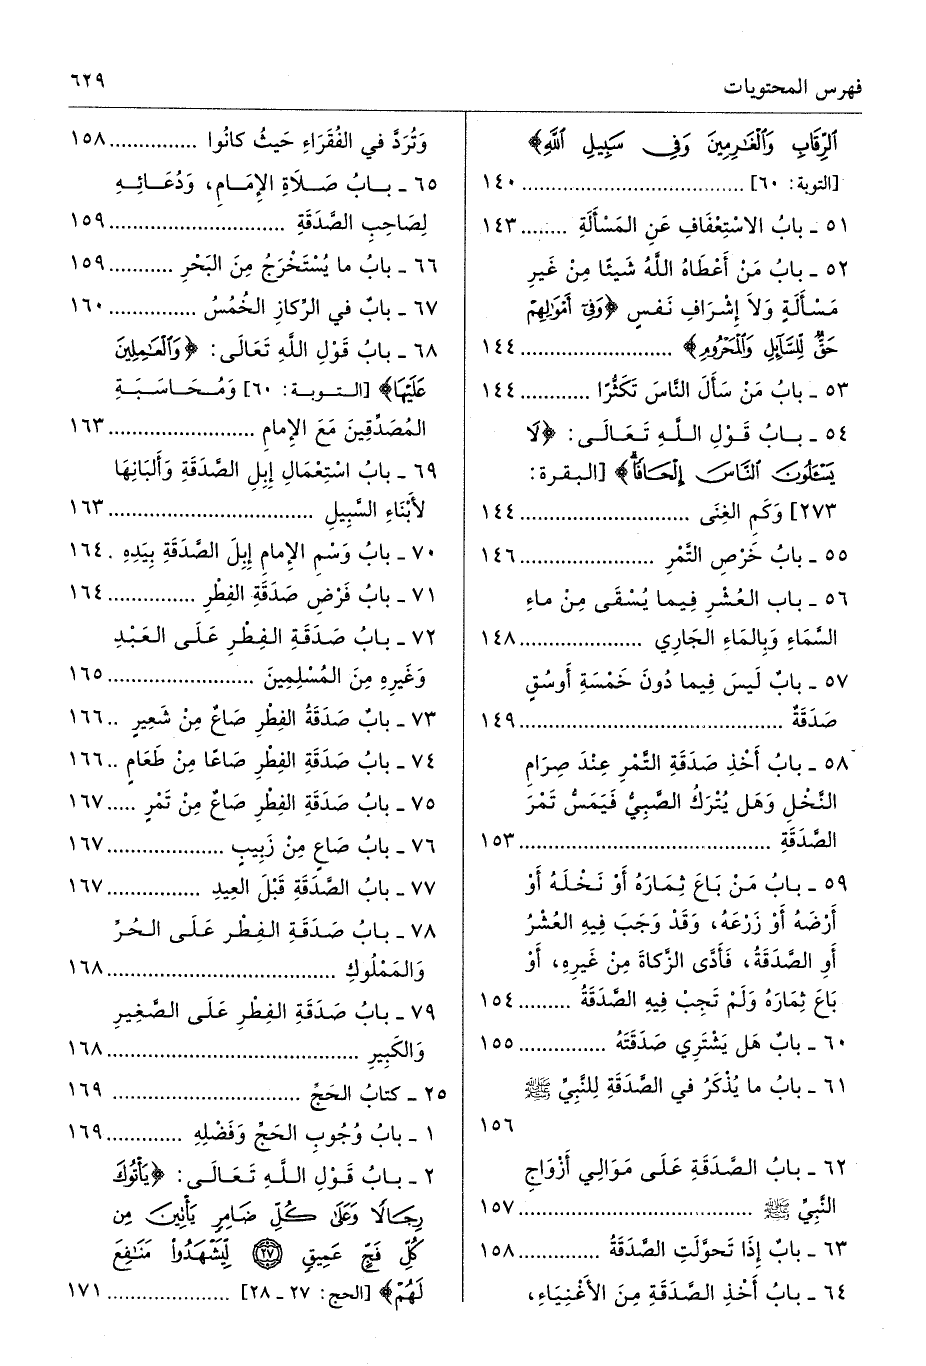 فهرس المحتويات ٦٢٩
الرِّقَابِ وَالْغَارِمِينَ وَفِي سَبِيلِ اللَّهِ﴾
[التوبة: ٦٠] ........ ١٤٠
٥١ ـ بابُ الاسْتِعْفَافِ عَنِ المَسْأَلَةِ ........ ١٤٣
٥٢ ـ بابُ مَنْ أَعْطَاهُ اللَّهُ شَيئًا مِنْ غَيرِ
مَسْأَلَةٍ وَلاَ إِشْرَافِ نَفسٍ ﴿وَفِي أَمْوَالِهِمْ
حَقٌّ لِلسَّائِلِ وَالْمَحْرُومِ﴾ ........ ١٤٤
٥٣ ـ بابُ مَنْ سَأَلَ النَّاسَ تَكَثُّرًا ........ ١٤٤
٥٤ ـ بابُ قَوْلِ اللَّهِ تَعَالَى: ﴿لَا
يَسْأَلُونَ النَّاسَ إِلْحَافًا﴾ [البقرة:
٢٧٣] وَكَمِ الغِنَى ........ ١٤٤
٥٥ ـ بابُ خَرْصِ التَّمْرِ ........ ١٤٦
٥٦ ـ باب العُشْرِ فِيما يُسْقَى مِنْ ماءِ
السَّمَاءِ وَبِالمَاءِ الجَارِي ........ ١٤٨
٥٧ ـ بابٌ لَيسَ فِيما دُونَ خَمْسَةِ أَوسُقٍ
صَدَقَةٌ ........ ١٤٩
٥٨ ـ بابُ أَخْذِ صَدَقَةِ التَّمْرِ عِنْدَ صِرَامِ
النَّخْلِ وَهَل يُتْرَكُ الصَّبِيُّ فَيَمَسُّ تَمْرَ
الصَّدَقَةِ ........ ١٥٣
٥٩ ـ بابُ مَنْ بَاعَ ثِمَارَهُ أَوْ نَخْلَهُ أَوْ
أَرْضَهُ أَوْ زَرْعَهُ، وَقَدْ وَجَبَ فِيهِ العُشْرُ
أَوِ الصَّدَقَةُ، فَأَدَّى الزَّكاةَ مِنْ غَيرِهِ، أَوْ
بَاعَ ثِمَارَهُ وَلَمْ تَجِبْ فِيهِ الصَّدَقَةُ ........ ١٥٤
٦٠ ـ بابٌ هَل يَشْتَرِي صَدَقَتَهُ ........ ١٥٥
٦١ ـ بابُ ما يُذْكَرُ في الصَّدَقَةِ لِلنَّبِيِّ ﷺ
١٥٦
٦٢ ـ بابُ الصَّدَقَةِ عَلَى مَوَالِي أَزْوَاجِ
النَّبِيِّ ﷺ ........ ١٥٧
٦٣ ـ بابٌ إِذَا تَحوَّلَتِ الصَّدَقَةُ ........ ١٥٨
٦٤ ـ بابُ أَخْذِ الصَّدَقَةِ مِنَ الأَغْنِيَاءِ،
وَتُرَدَّ في الفُقَرَاءِ حَيثُ كانُوا ........ ١٥٨
٦٥ ـ بابُ صَلاَةِ الإِمَامِ، وَدُعَائِهِ
لِصَاحِبِ الصَّدَقَةِ ........ ١٥٩
٦٦ ـ بابُ ما يُسْتَخْرَجُ مِنَ البَحْرِ ........ ١٥٩
٦٧ ـ بابٌ في الرِّكازِ الخُمُسُ ........ ١٦٠
٦٨ ـ بابُ قَوْلِ اللَّهِ تَعَالَى: ﴿وَالْعَامِلِينَ
عَلَيْهَا﴾ [التوبة: ٦٠] وَمُحَاسَبَةِ
المُصَدِّقِينَ مَعَ الإِمامِ ........ ١٦٣
٦٩ ـ بابُ اسْتِعْمَالِ إِبِلِ الصَّدَقَةِ وَأَلبَانِهَا
لأَبْنَاءِ السَّبِيلِ ........ ١٦٣
٧٠ ـ بابُ وَسْمِ الإِمامِ إِبِلَ الصَّدَقَةِ بِيَدِهِ . ١٦٤
٧١ ـ بابُ فَرْضِ صَدَقَةِ الفِطْرِ ........ ١٦٤
٧٢ ـ بابُ صَدَقَةِ الفِطْرِ عَلَى العَبْدِ
وَغَيرِهِ مِنَ المُسْلِمِينَ ........ ١٦٥
٧٣ ـ بابٌ صَدَقَةُ الفِطْرِ صَاعٌ مِنْ شَعِيرٍ .. ١٦٦
٧٤ ـ بابُ صَدَقَةِ الفِطْرِ صَاعًا مِنْ طَعَامٍ .. ١٦٦
٧٥ ـ بابُ صَدَقَةِ الفِطْرِ صَاعٌ مِنْ تَمْرٍ ..... ١٦٧
٧٦ ـ بابُ صَاعٍ مِنْ زَبِيبٍ ........ ١٦٧
٧٧ ـ بابُ الصَّدَقَةِ قَبْلَ العِيدِ ........ ١٦٧
٧٨ ـ بابُ صَدَقَةِ الفِطْرِ عَلَى الحُرِّ
وَالمَمْلُوكِ ........ ١٦٨
٧٩ ـ بابُ صَدَقَةِ الفِطْرِ عَلَى الصَّغِيرِ
وَالكَبِيرِ ........ ١٦٨
٢٥ ـ كتابُ الحَجِّ ........ ١٦٩
١ ـ بابُ وُجُوبِ الحَجِّ وَفَضْلِهِ ........ ١٦٩
٢ ـ بابُ قَوْلِ اللَّهِ تَعَالَى: ﴿يَأْتُوكَ
رِجَالًا وَعَلَى كُلِّ ضَامِرٍ يَأْتِينَ مِن
كُلِّ فَجٍّ عَمِيقٍ ۝٢٧ لِيَشْهَدُوا مَنَافِعَ
لَهُمْ﴾ [الحج: ٢٧ ـ ٢٨] ........ ١٧١